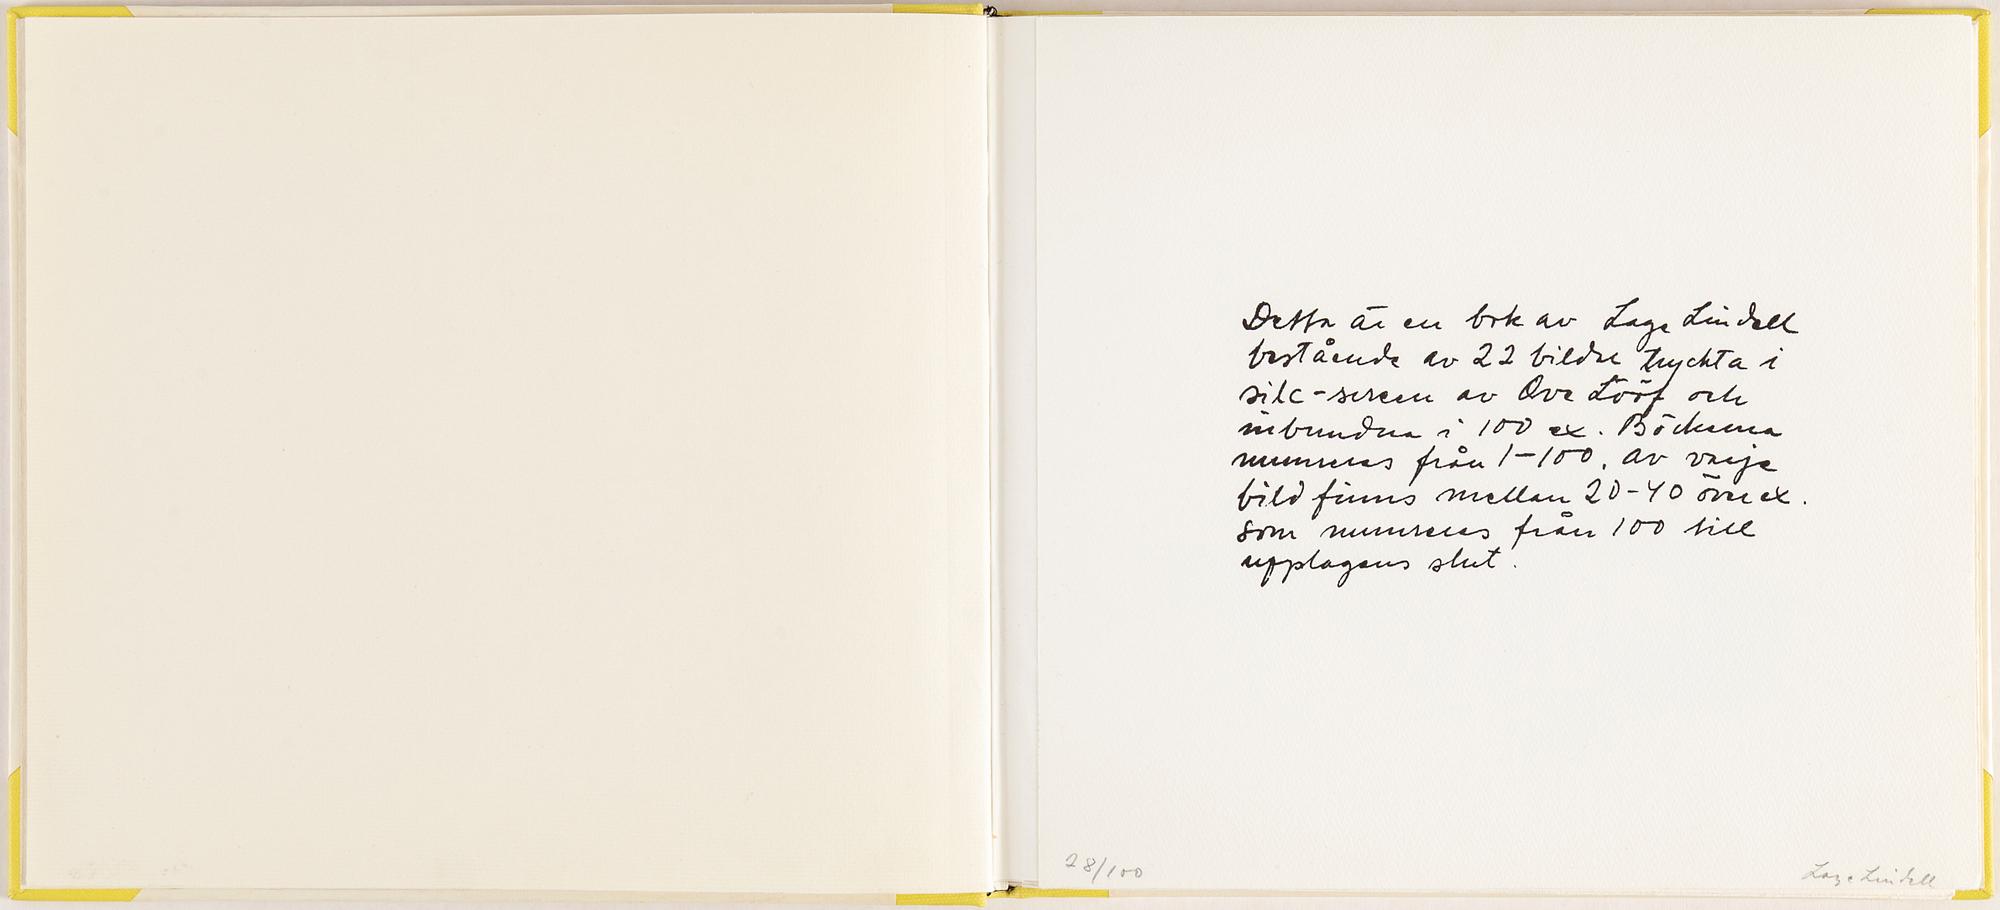 Detta är en bok av Lage Lindell
bestående av 22 bilder tryckta i
silc-screen av Ove Lööf och
inbundna i 100 ex. Böckerna
numreras från 1-100. Av varje
bild finns mellan 20-40 över ex.
som numreras från 100 till
upplagans slut.
28/100
Lage Lindell